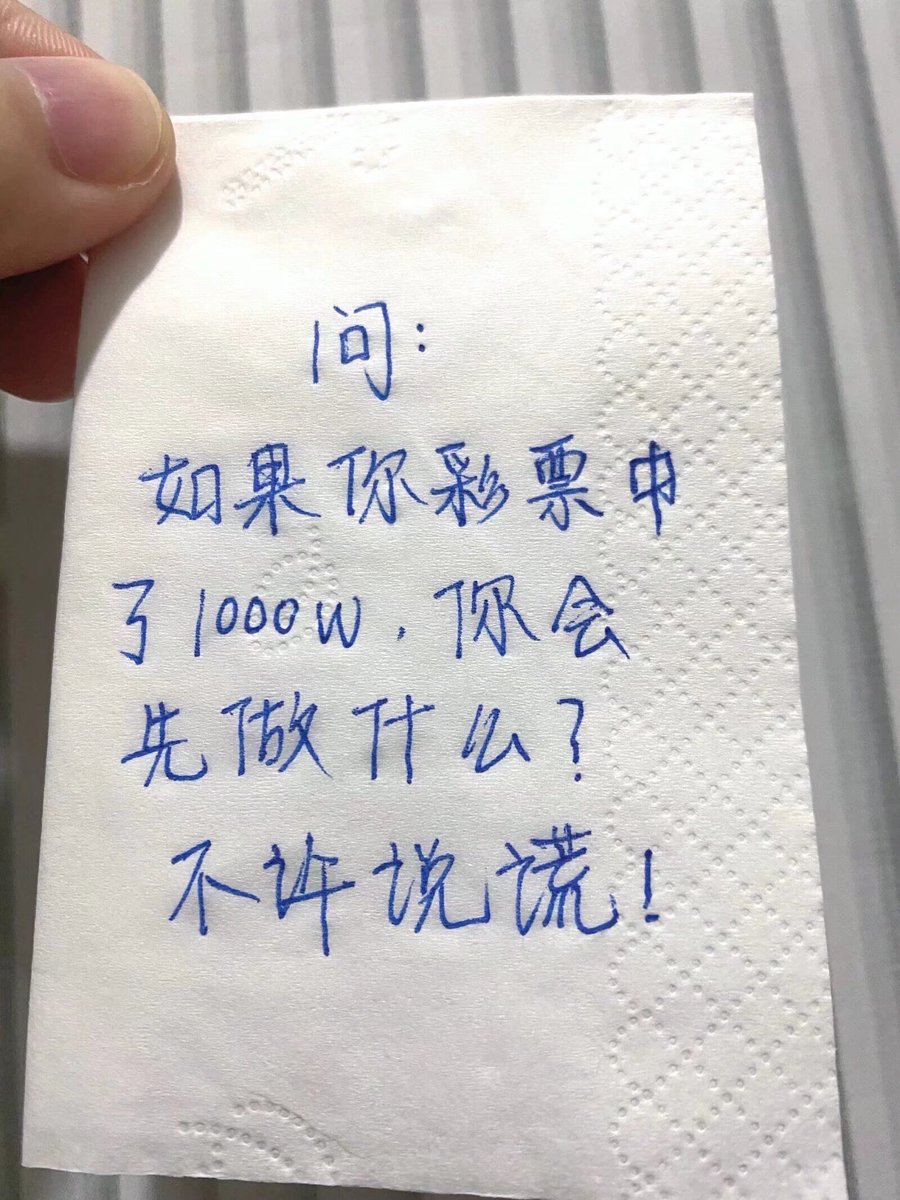 问：
如果你彩票中
了1000W，你会
先做什么？
不许说谎！